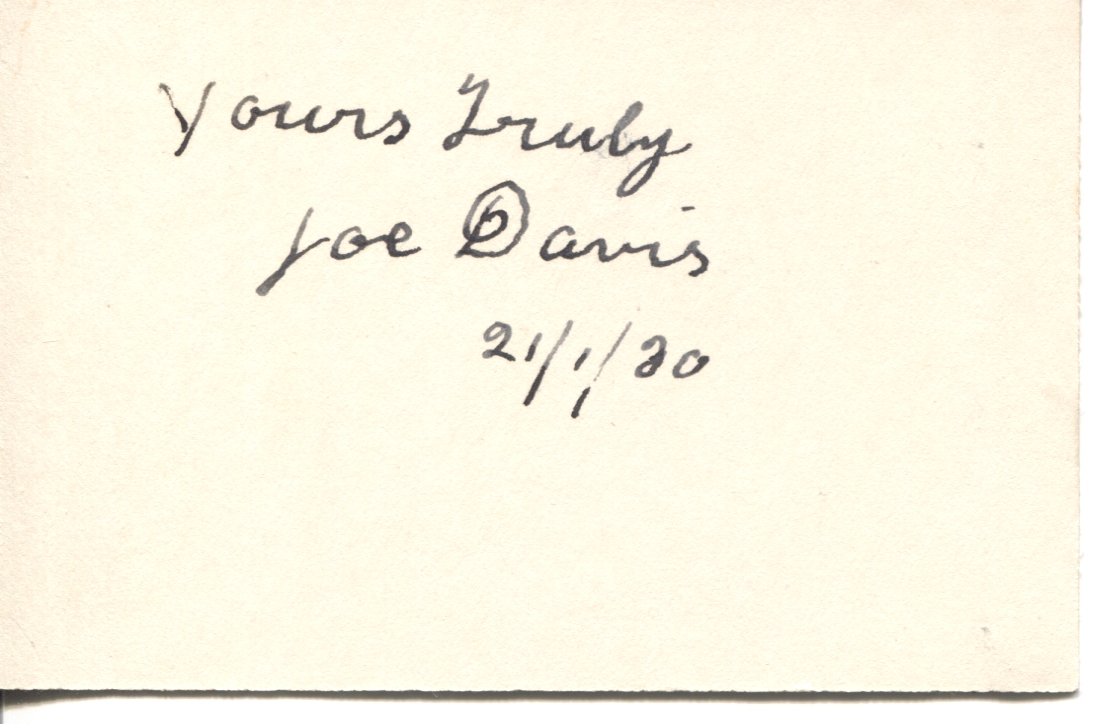 Yours Truly
Joe Davis
21/1/30